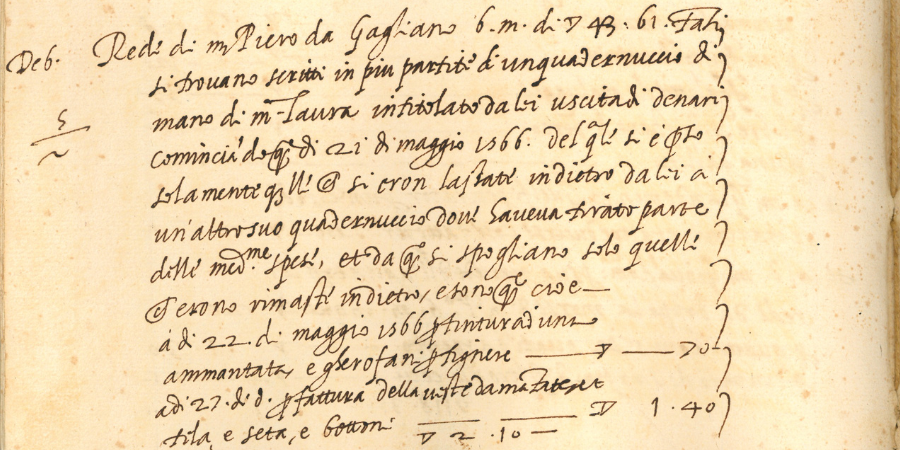 Deb. Rede di m Piero da Gagliano b. m. di ▽ 43. 61. Fatj
si trovano scritti in piu partite d'un quadernuccio di
mano di mª Laura intitolato da lei uscita di denari
cominciá di 21 di maggio 1566. del qle si è
solamente qlle si eron lassate indietro da lei ĩ
un'altro suo quadernuccio dove haveva tirato parte
delle med.me spese, et da si spogliano solo quelle
erono rimaste indietro, e sono cioe—
á di 22. di maggio 1566 p tintura d'una
ammantata, e p tignere — ▽ — 70
adi 27. di d. p fattura della veste da
fila, e seta, e bottoni ▽ 1.40
▽ 2 .10 —